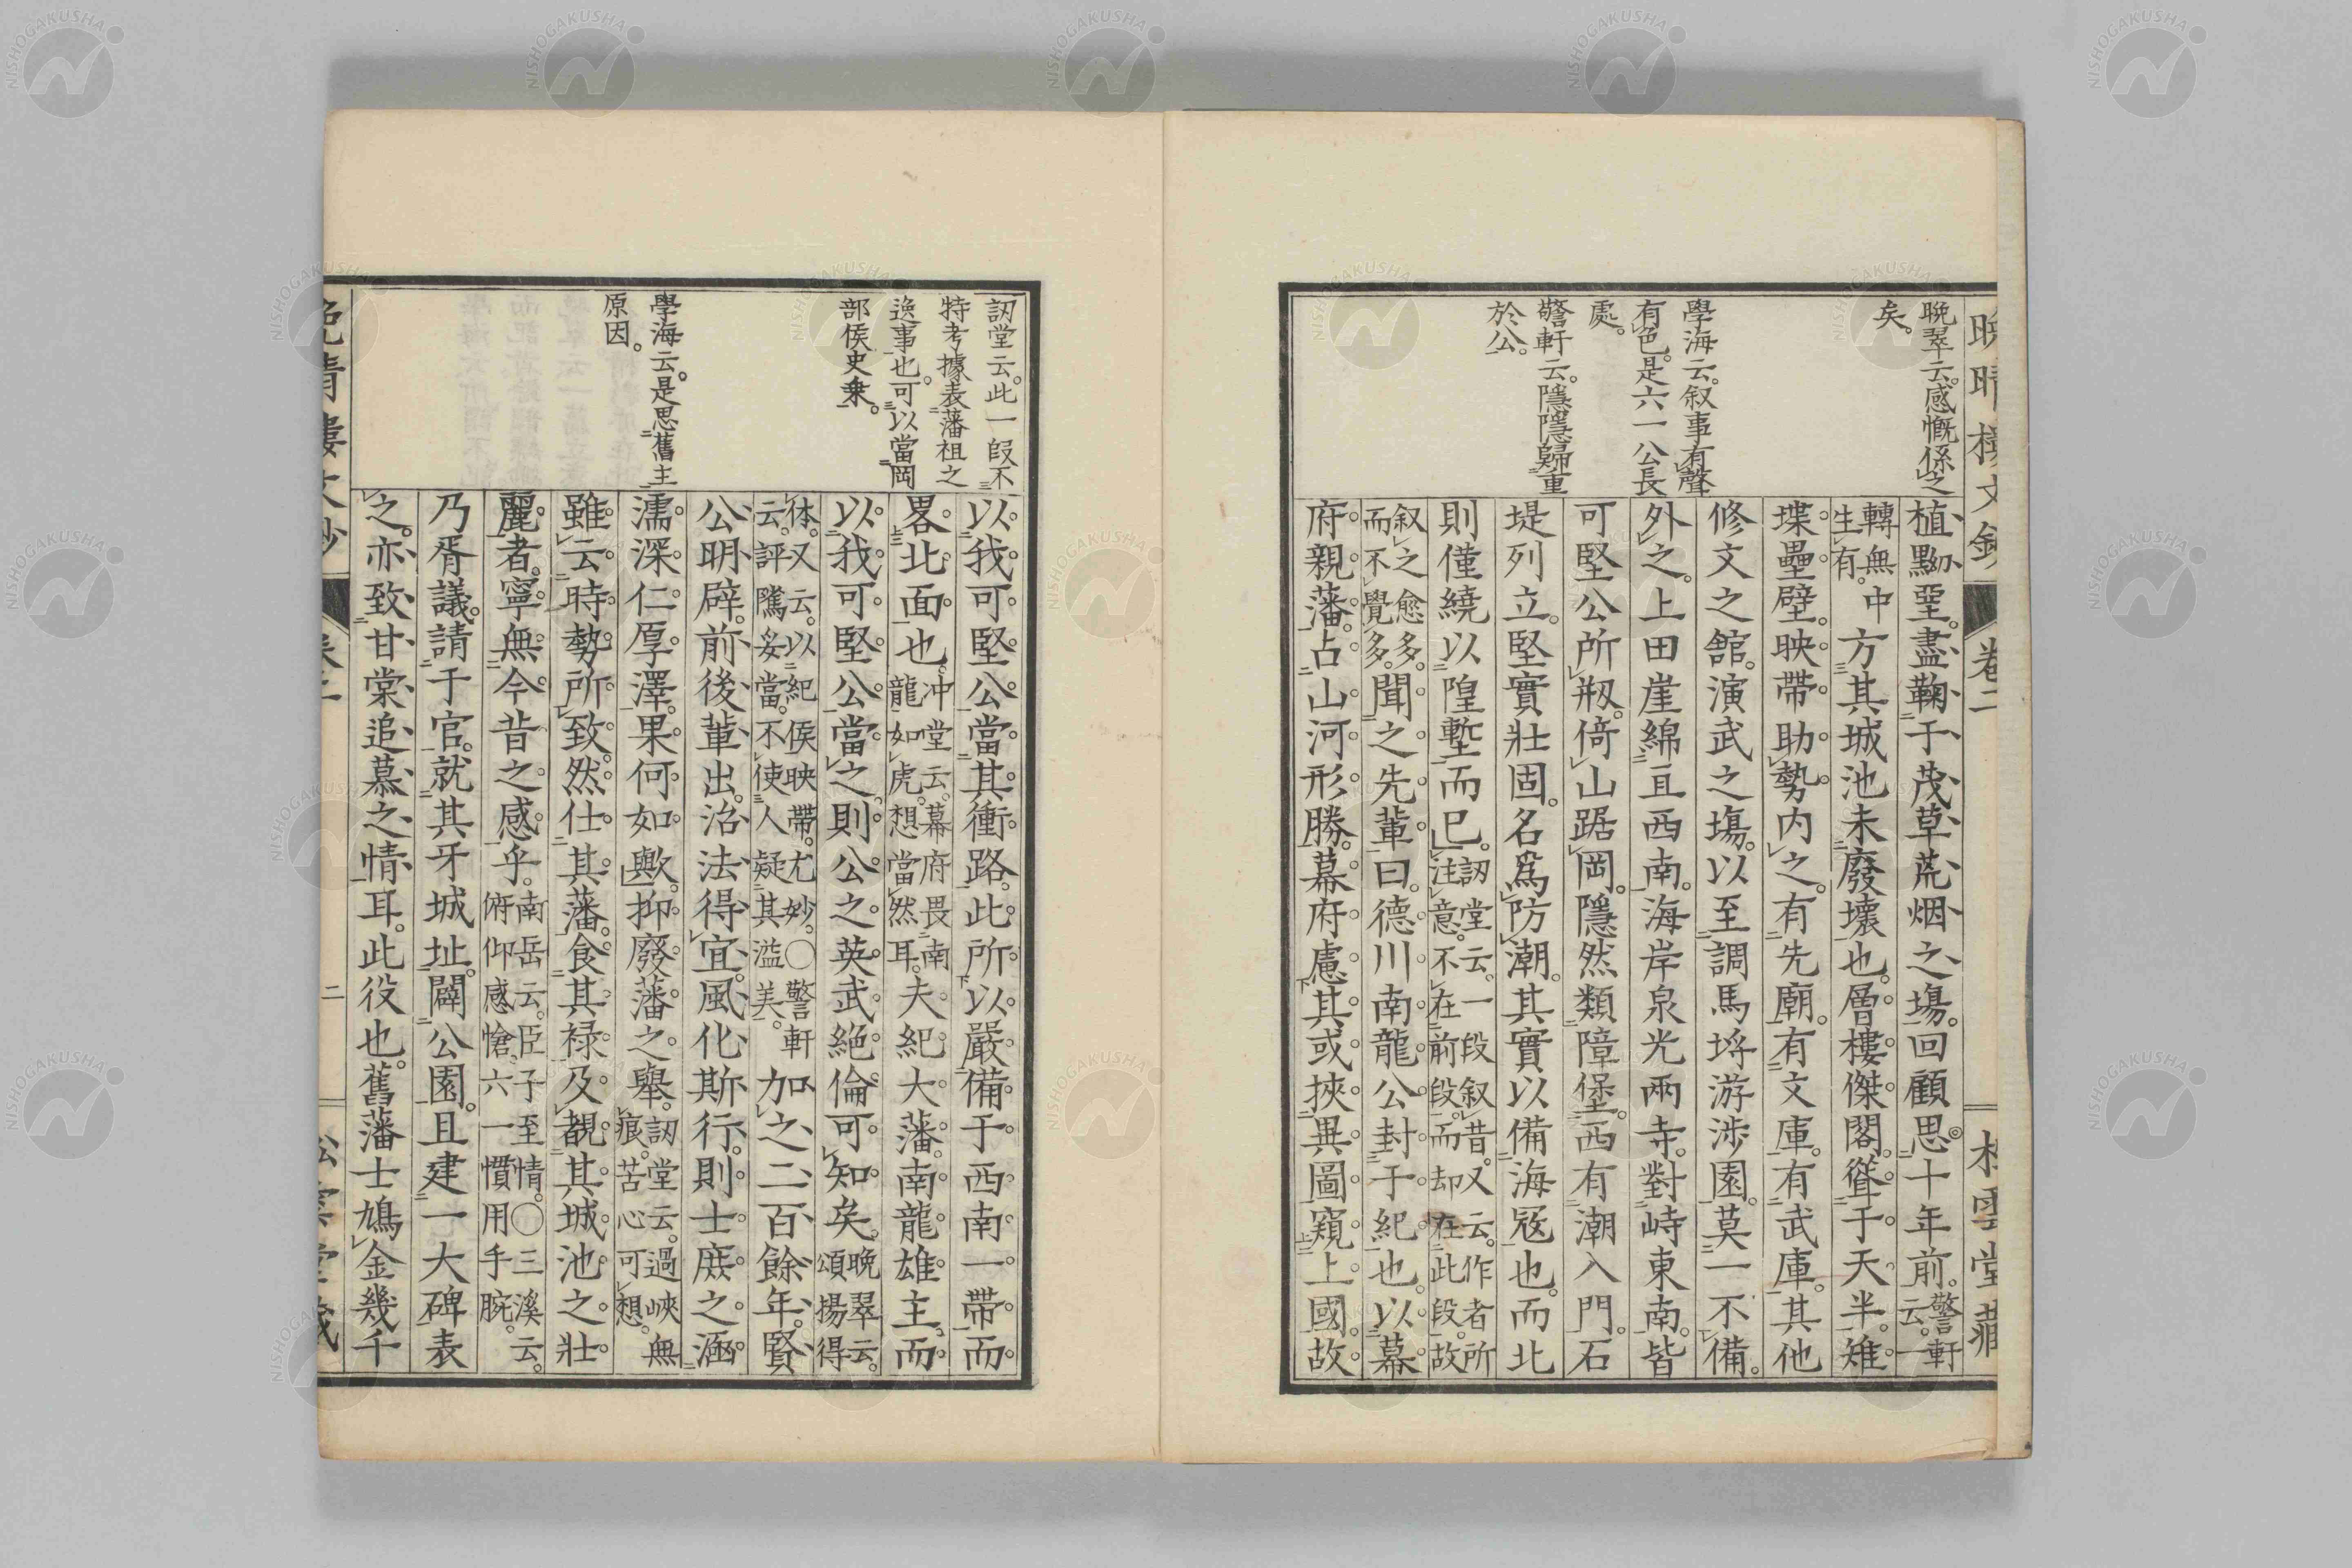 晩晴樓文鈔
卷二
松雲堂藏
晩翠云。感慨係之
矣。
學海云。叙事有聲
有色。是六一公長
處。
警軒云。隱隱歸重
於公。
植黝堊。盡鞠于茂草荒烟之塲。回顧思十年前。警軒云。一
轉無中生有。方其城池未廢壞也。層樓傑閣。聳于天半。雉
堞壘壁。映帶助勢。内之。有先廟。有文庫。有武庫。其他
修文之館。演武之塲。以至調馬埒游涉園。莫一不備。
外之。上田崖綿亙西南。海岸泉光兩寺。對峙東南。皆
可堅公所剏。倚山踞岡。隱然類障堡。西有潮入門。石
堤列立。堅實壯固。名爲防潮。其實以備海冦也。而北
則僅繞以隍塹而已。訒堂云。一段叙昔。又云。作者所注意。不在前段。而却在此段。故
叙之愈多。而不覺多。聞之先輩曰。德川南龍公封于紀也。以幕
府親藩。占山河形勝。幕府慮其或挾異圖。窺上國。故
訒堂云。此一段不
特考據表藩祖之
逸事也。可以當岡
部侯史乘。
學海云。是思舊主
原因。
以我可堅公。當其衝路。此所以嚴備于西南一帶。而
畧北面也。冲堂云。幕府畏南龍如虎。想當然耳。夫紀大藩。南龍雄主。而
以我可堅公。當之。則公之英武絶倫可知矣。晩翠云。頌揚得
体。又云。以紀侯映帶。尤妙。○警軒云。評隲妥當。不使人疑其溢美。加之二百餘年。賢
公明辟。前後輩出。治法得宜。風化斯行。則士庶之涵
濡深仁厚澤。果何如歟。抑廢藩之舉。訒堂云。過峽無痕。苦心可想。
雖云時勢所致。然仕其藩。食其禄。及覩其城池之壯
麗者。寧無今昔之感乎。南岳云。臣子至情。○三溪云。俯仰感愴。六一慣用手腕。
乃胥議。請于官。就其牙城址。闢公園。且建一大碑表
之。亦致甘棠追慕之情耳。此役也。舊藩士鳩金幾千
晩晴樓文鈔
卷二
二
松雲堂藏